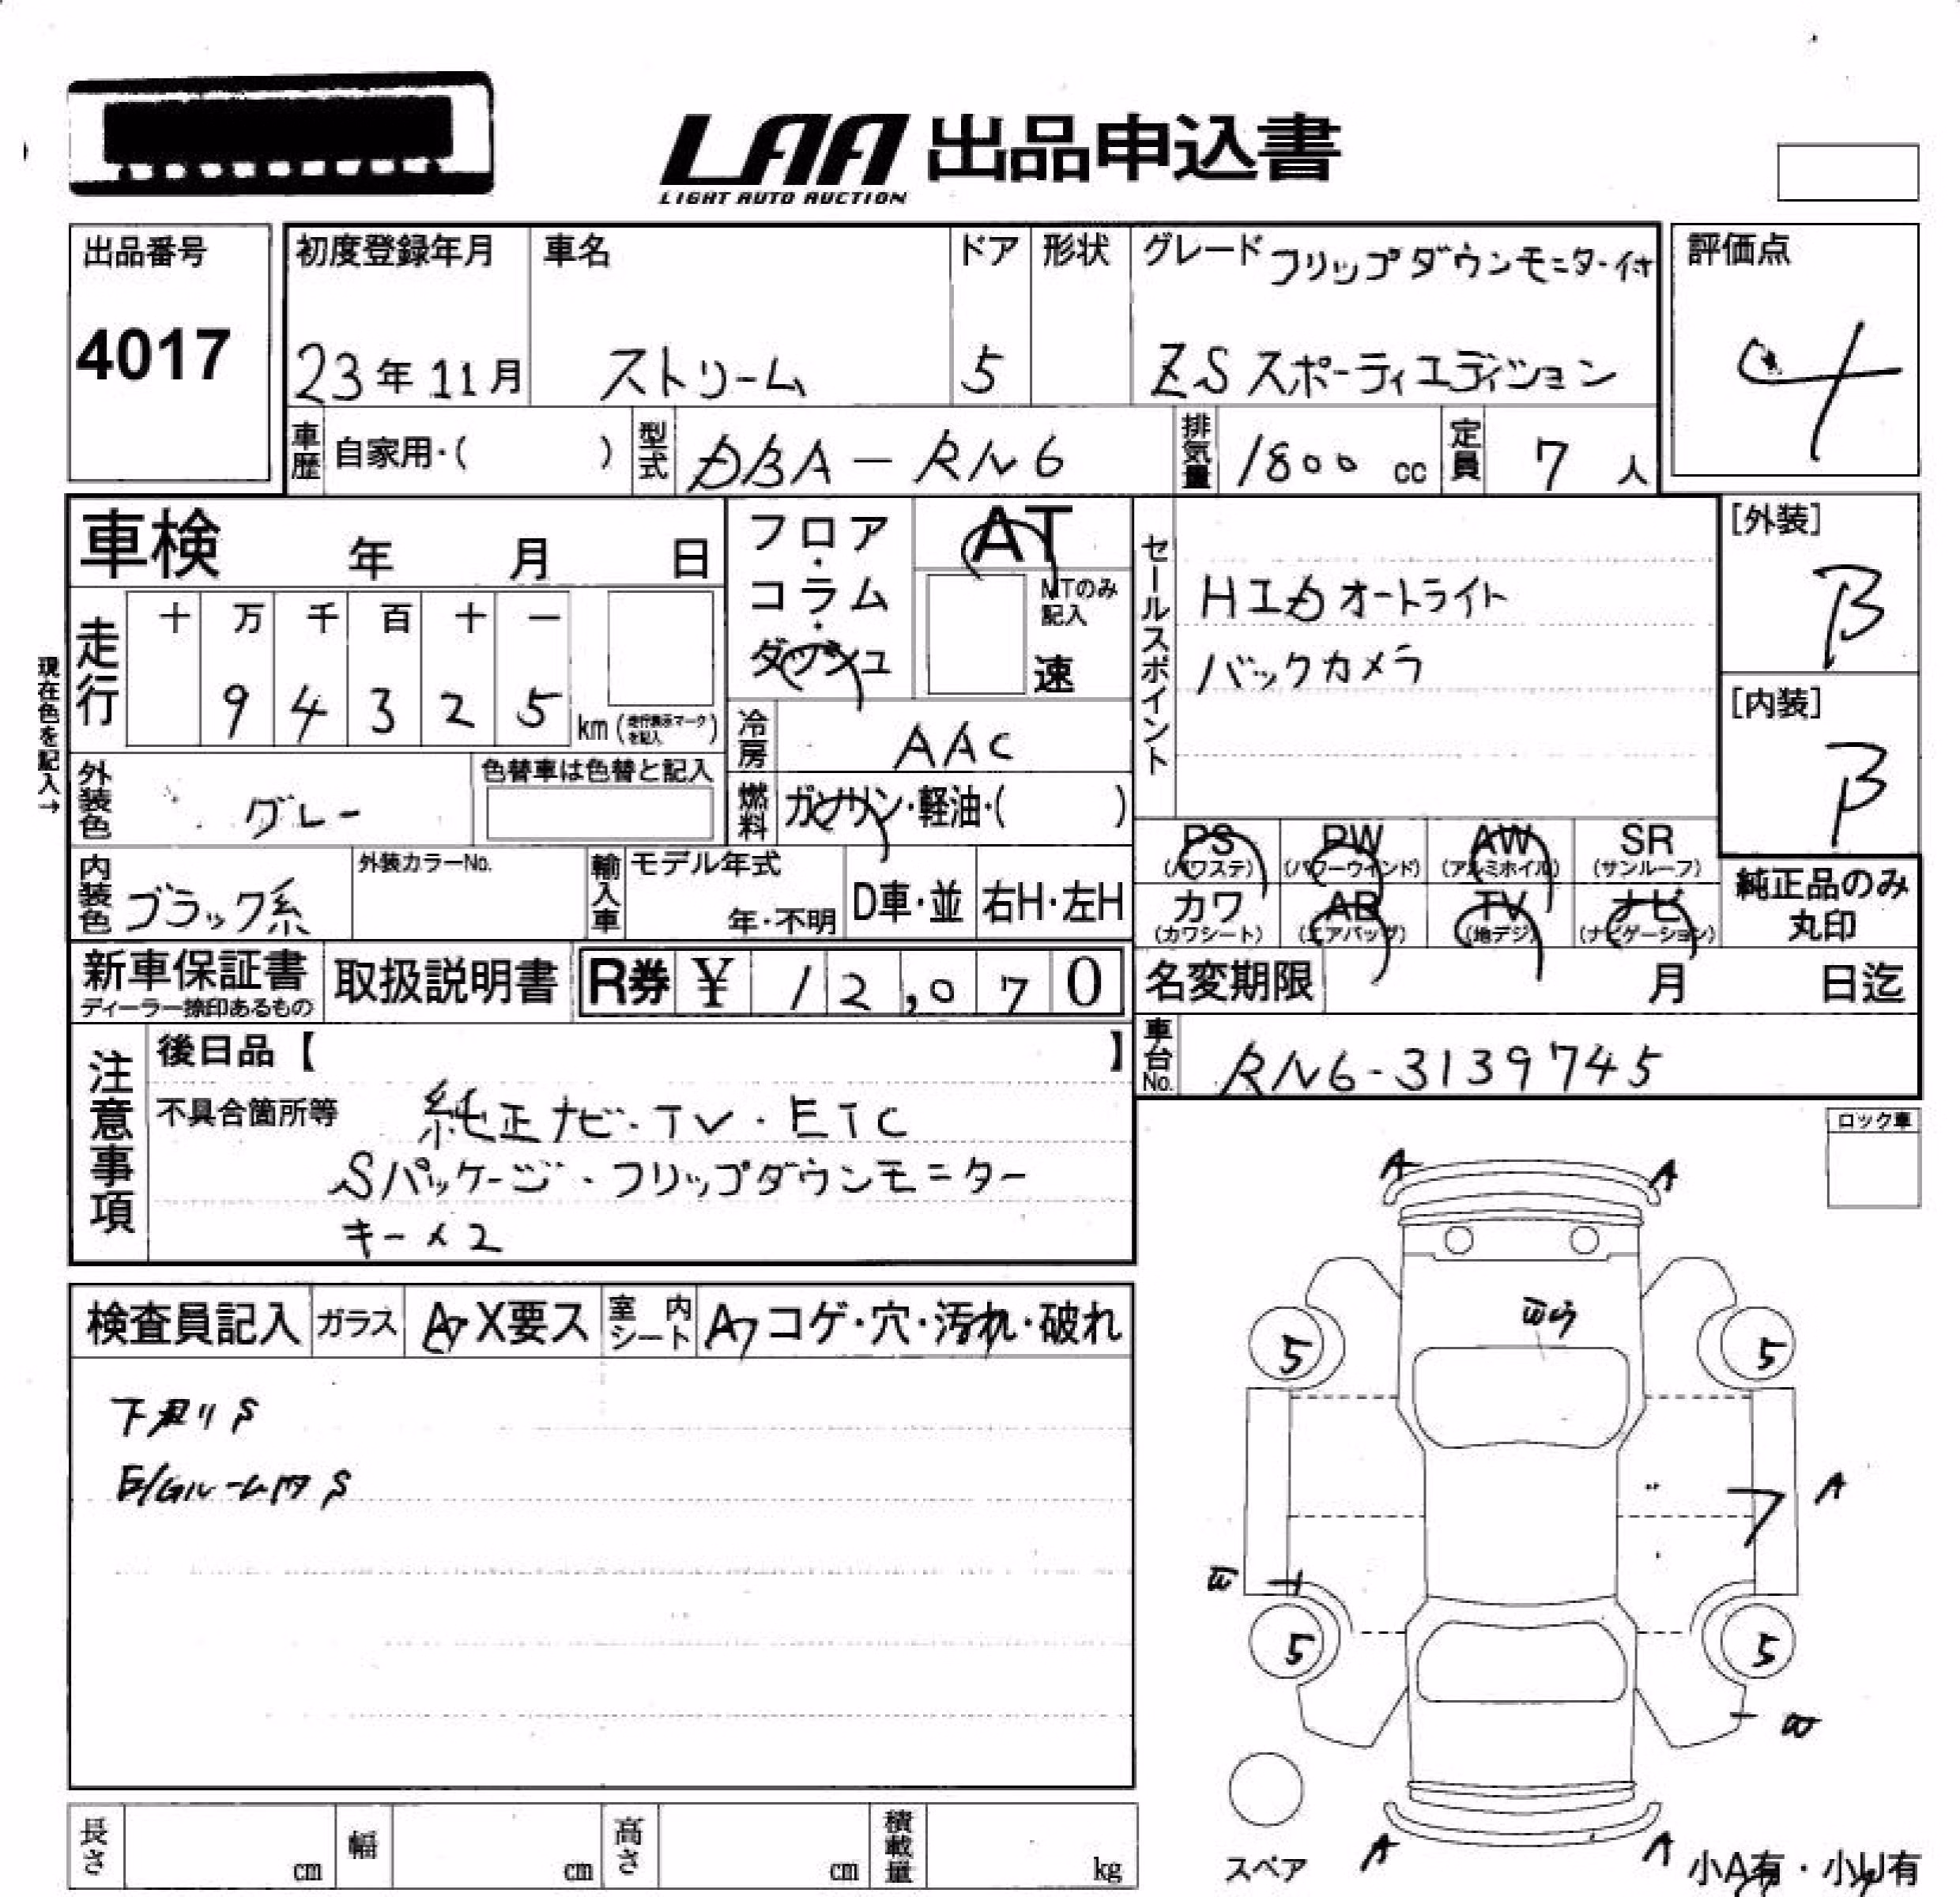 LAA 出品申込書
LIGHT AUTO AUCTION
出品番号
4017
初度登録年月
23年11月
車名
ストリーム
ドア
5
形状
グレード フリップダウンモニター付
ZS スポーティエディション
評価点
4
車歴 自家用・( )
型式 DBA-RN6
排気量 1800 cc
定員 7 人
車検 年 月 日
フロア・コラム・ダッシュ
AT
MTのみ記入
速
走行
十 万 千 百 十 一
9 4 3 2 5
km (走行表示マークを記入)
現在色を記入→
冷房 AAC
外装色 グレー
色替車は色替と記入
燃料 ガソリン・軽油・( )
内装色 ブラック系
外装カラーNo.
輸入車 モデル年式
年・不明
D車・並
右H・左H
セールスポイント
HID オートライト
バックカメラ
[外装]
B
[内装]
B
PS (パワステ)
PW (パワーウインド)
AW (アルミホイル)
SR (サンルーフ)
カワ (カワシート)
AB (エアバッグ)
TV (地デジ)
ナビ (ナビゲーション)
純正品のみ丸印
新車保証書
ディーラー捺印あるもの
取扱説明書
R券 ¥ 12,070
名変期限 月 日迄
車台No. RN6-3139745
注意事項
後日品【 】
不具合箇所等
純正ナビ・TV・ETC
Sパッケージ・フリップダウンモニター
キー×2
ロック車
検査員記入
ガラス A・X要ス
室内シート A コゲ・穴・汚れ・破れ
下廻りS
E/Gルーム内S
A A
5 5
A
5 5
A A
スペア
小A有・小U有
長さ cm
幅 cm
高さ cm
積載量 kg